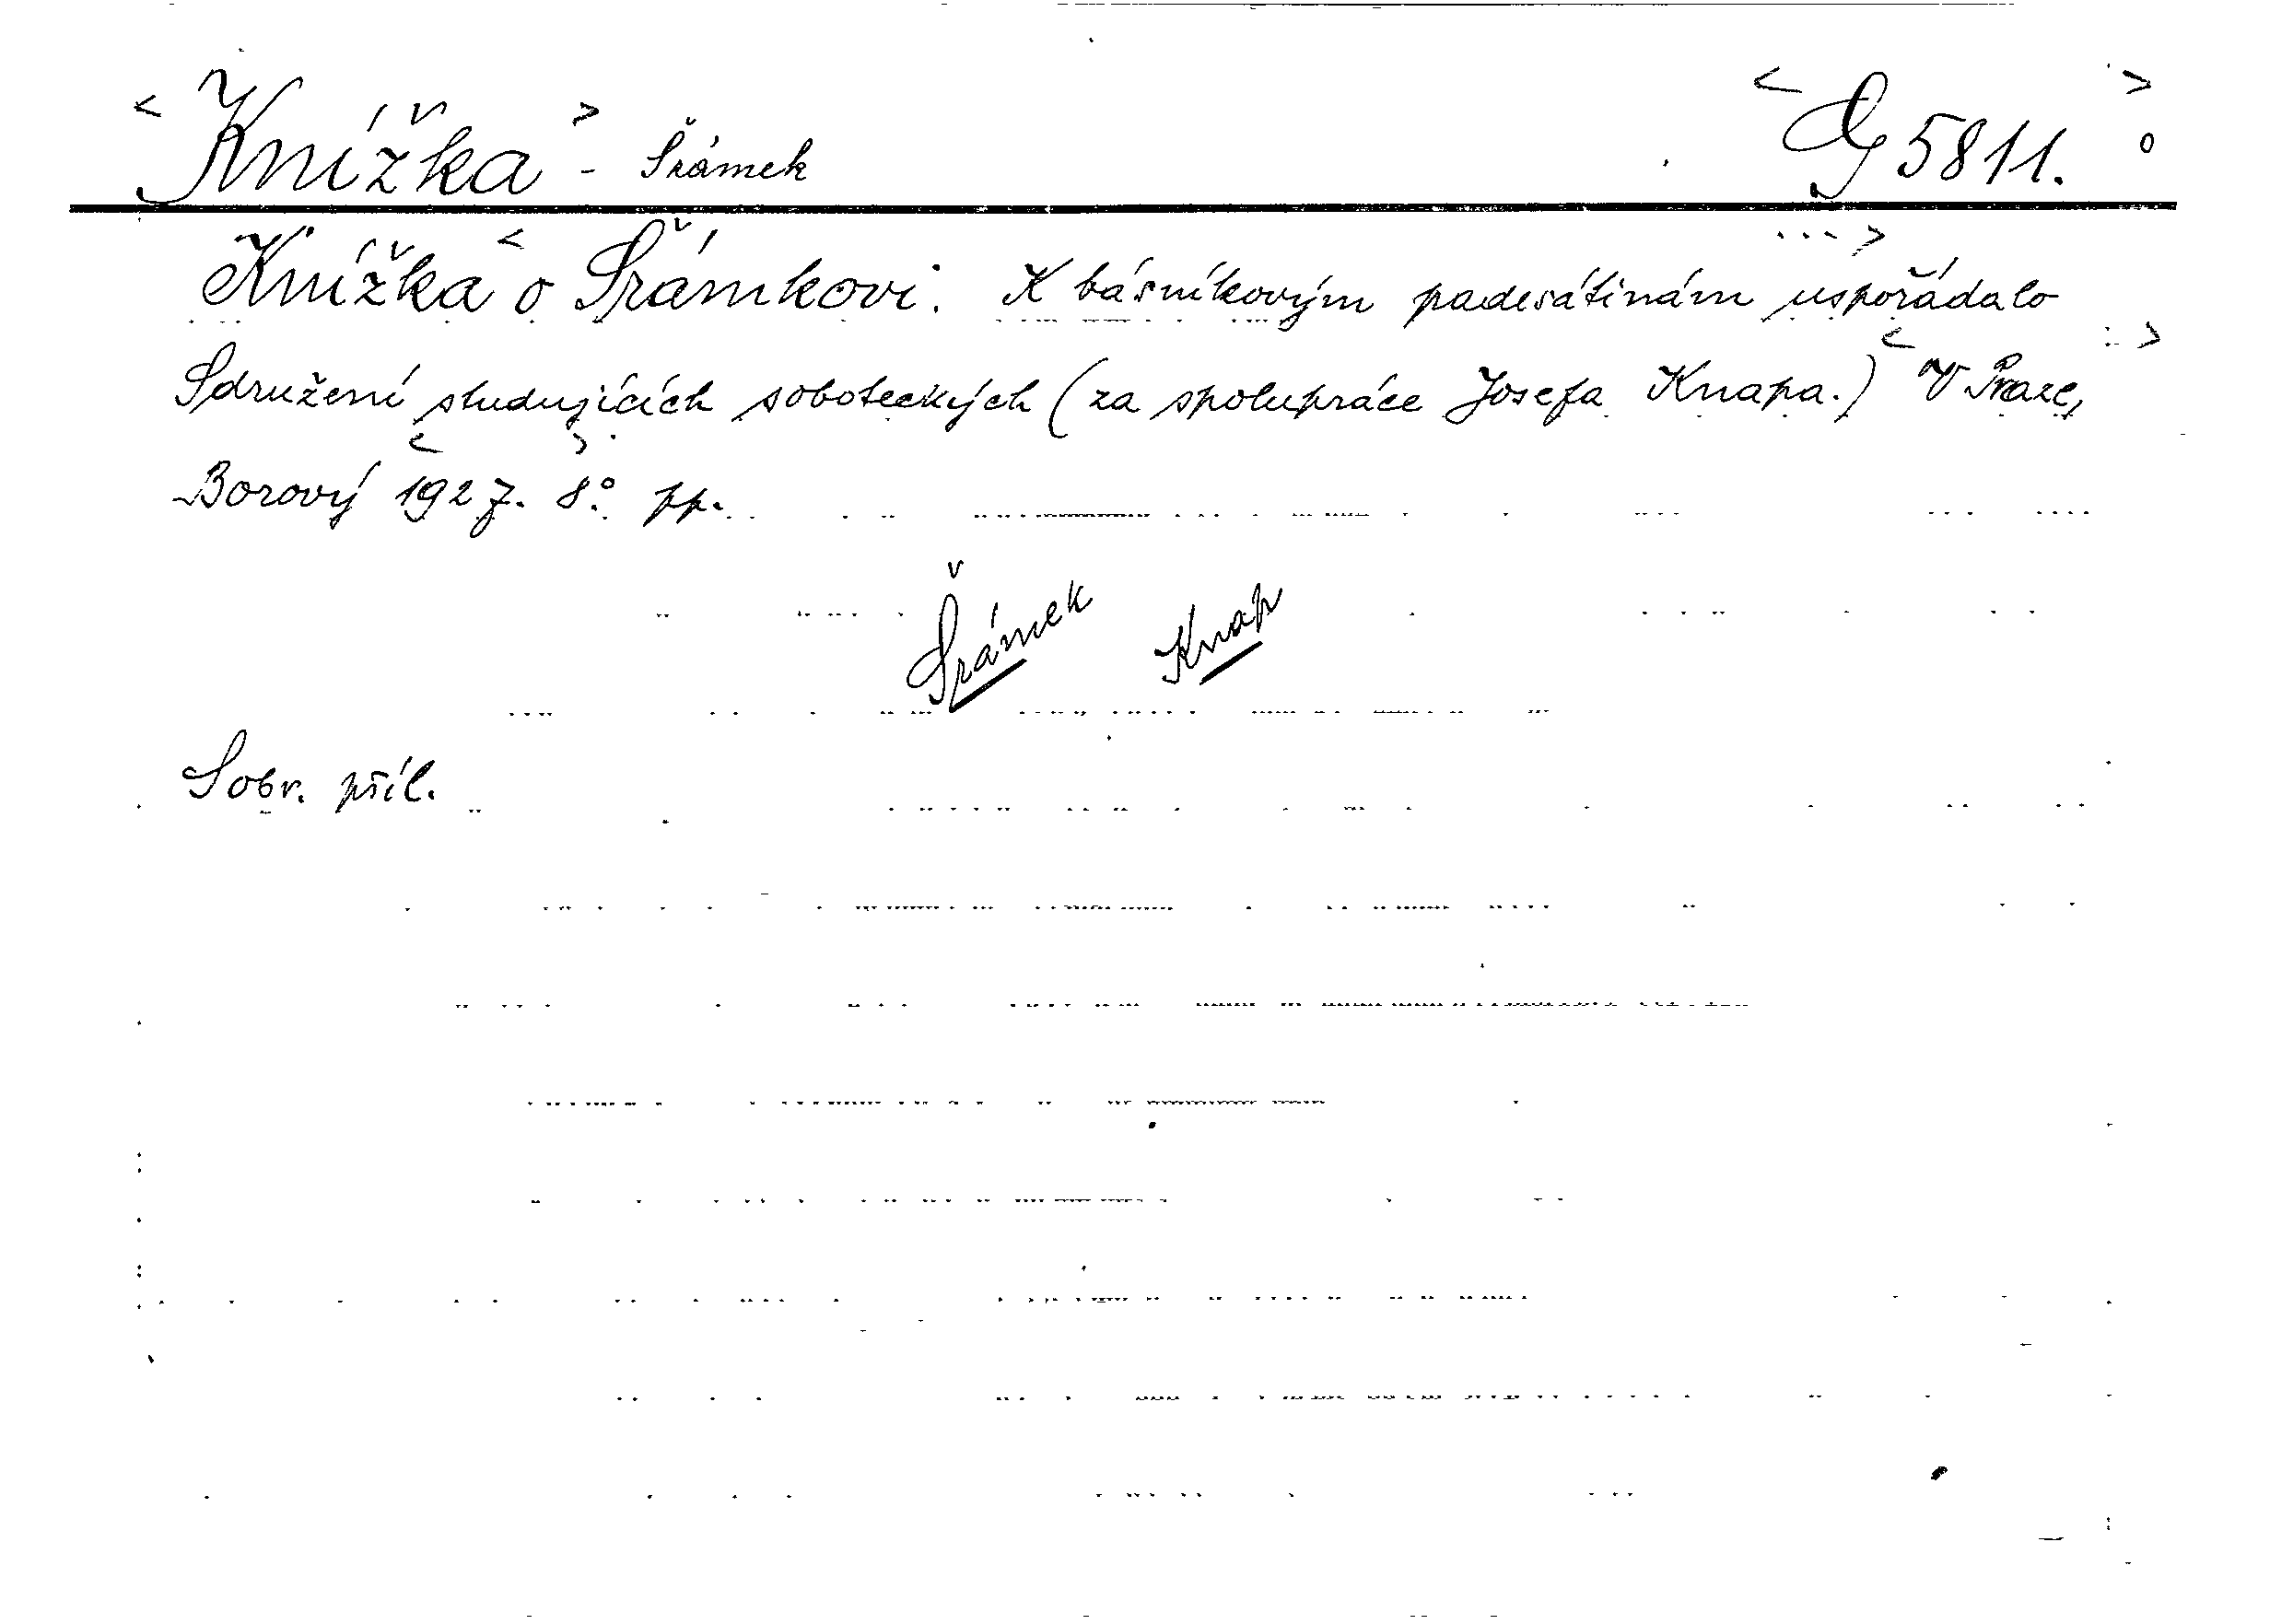 <Knížka> - Šrámek <G 5811.>
Knížka <o Šrámkovi. K básníkovým padesátinám uspořádalo
Sdružení studujících soboteckých (za spolupráce Josefa Knapa.) <V Praze,>
Borový <1927.> 8° pp.
Šrámek Knap
S obr. příl.